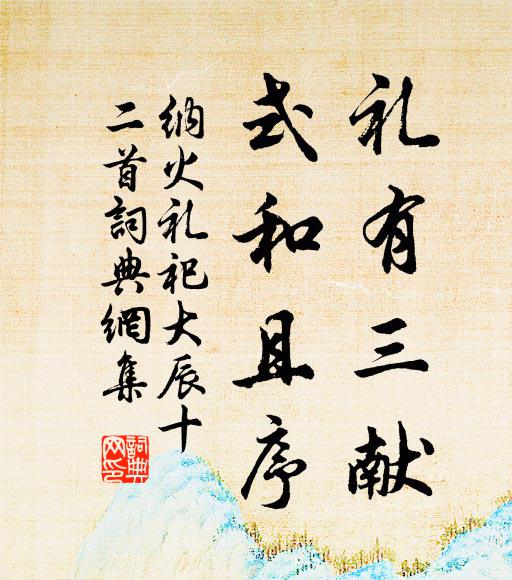 礼有三献
式和且序
纳火礼祀大辰十
二首詞典網集
詞典
网印